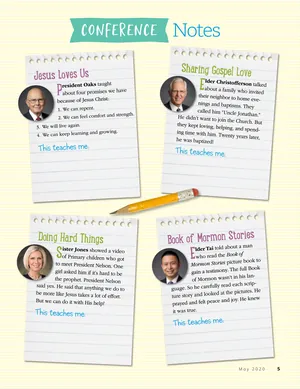 CONFERENCE Notes
Jesus Loves Us
President Oaks taught
about four promises we have
because of Jesus Christ.
1. We can repent.
2. We can feel comfort and strength.
3. We will live again.
4. We can keep learning and growing.
This teaches me:
Sharing Gospel Love
Elder Christofferson talked
about a family who invited
their neighbor to home eve-
nings and baptisms. They
called him “Uncle Jonathan.”
He didn’t want to join the Church. But
they kept loving, helping, and spend-
ing time with him. Twenty years later,
he was baptized!
This teaches me:
Doing Hard Things
Sister Jones showed a video
of Primary children who got
to meet President Nelson. One
girl asked him if it's hard to be
the prophet. President Nelson
said yes. He said that anything we do to
be more like Jesus takes a lot of effort.
But we can do it with His help!
This teaches me:
Book of Mormon Stories
Elder Tai told about a man
who read the Book of
Mormon Stories picture book to
gain a testimony. The full Book
of Mormon wasn’t in his lan-
guage. So he carefully read each scrip-
ture story and looked at the pictures. He
prayed and felt peace and joy. He knew
it was true.
This teaches me:
May 2020 5